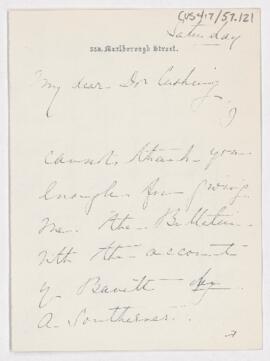 CUS417/57.121
Saturday
358. Marlborough Street.
My dear Dr Cushing,
I
cannot thank you
enough for giving
me the Bulletin
with the account
of Bassett by
a Southerner.